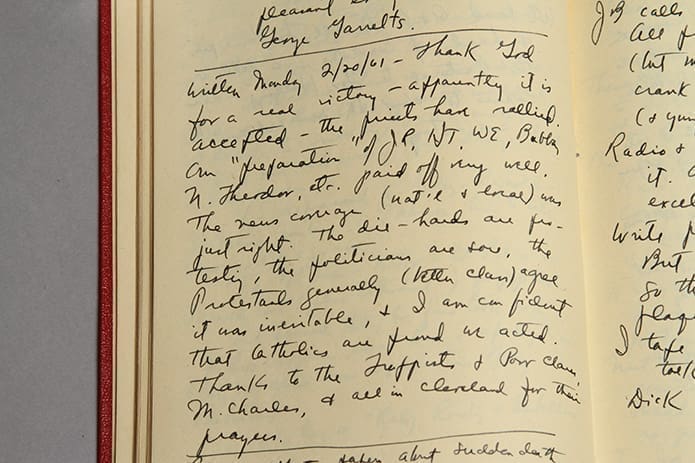 pleasant
George Garrelts.
Written Monday 2/20/61 – Thank God
for a real victory – apparently it is
accepted – the priests have rallied.
Our "preparation" of JR, NT, WE, Bubba,
N. Theodor, etc. paid off very well.
The news coverage (nat'l & local) was
just right. The die-hards are pro-
testing, the politicians are sore, the
Protestants generally (better class) agree
it was inevitable, & I am confident
that Catholics are proud we acted.
Thanks to the Trappists & Poor Clares,
M. Charles, & all in Cleveland for their
prayers.
taken about sudden death
JB calls
All
(but
crank
(&
Radio &
it.
excel
Write
But
So th
plaq
I tape
Dick